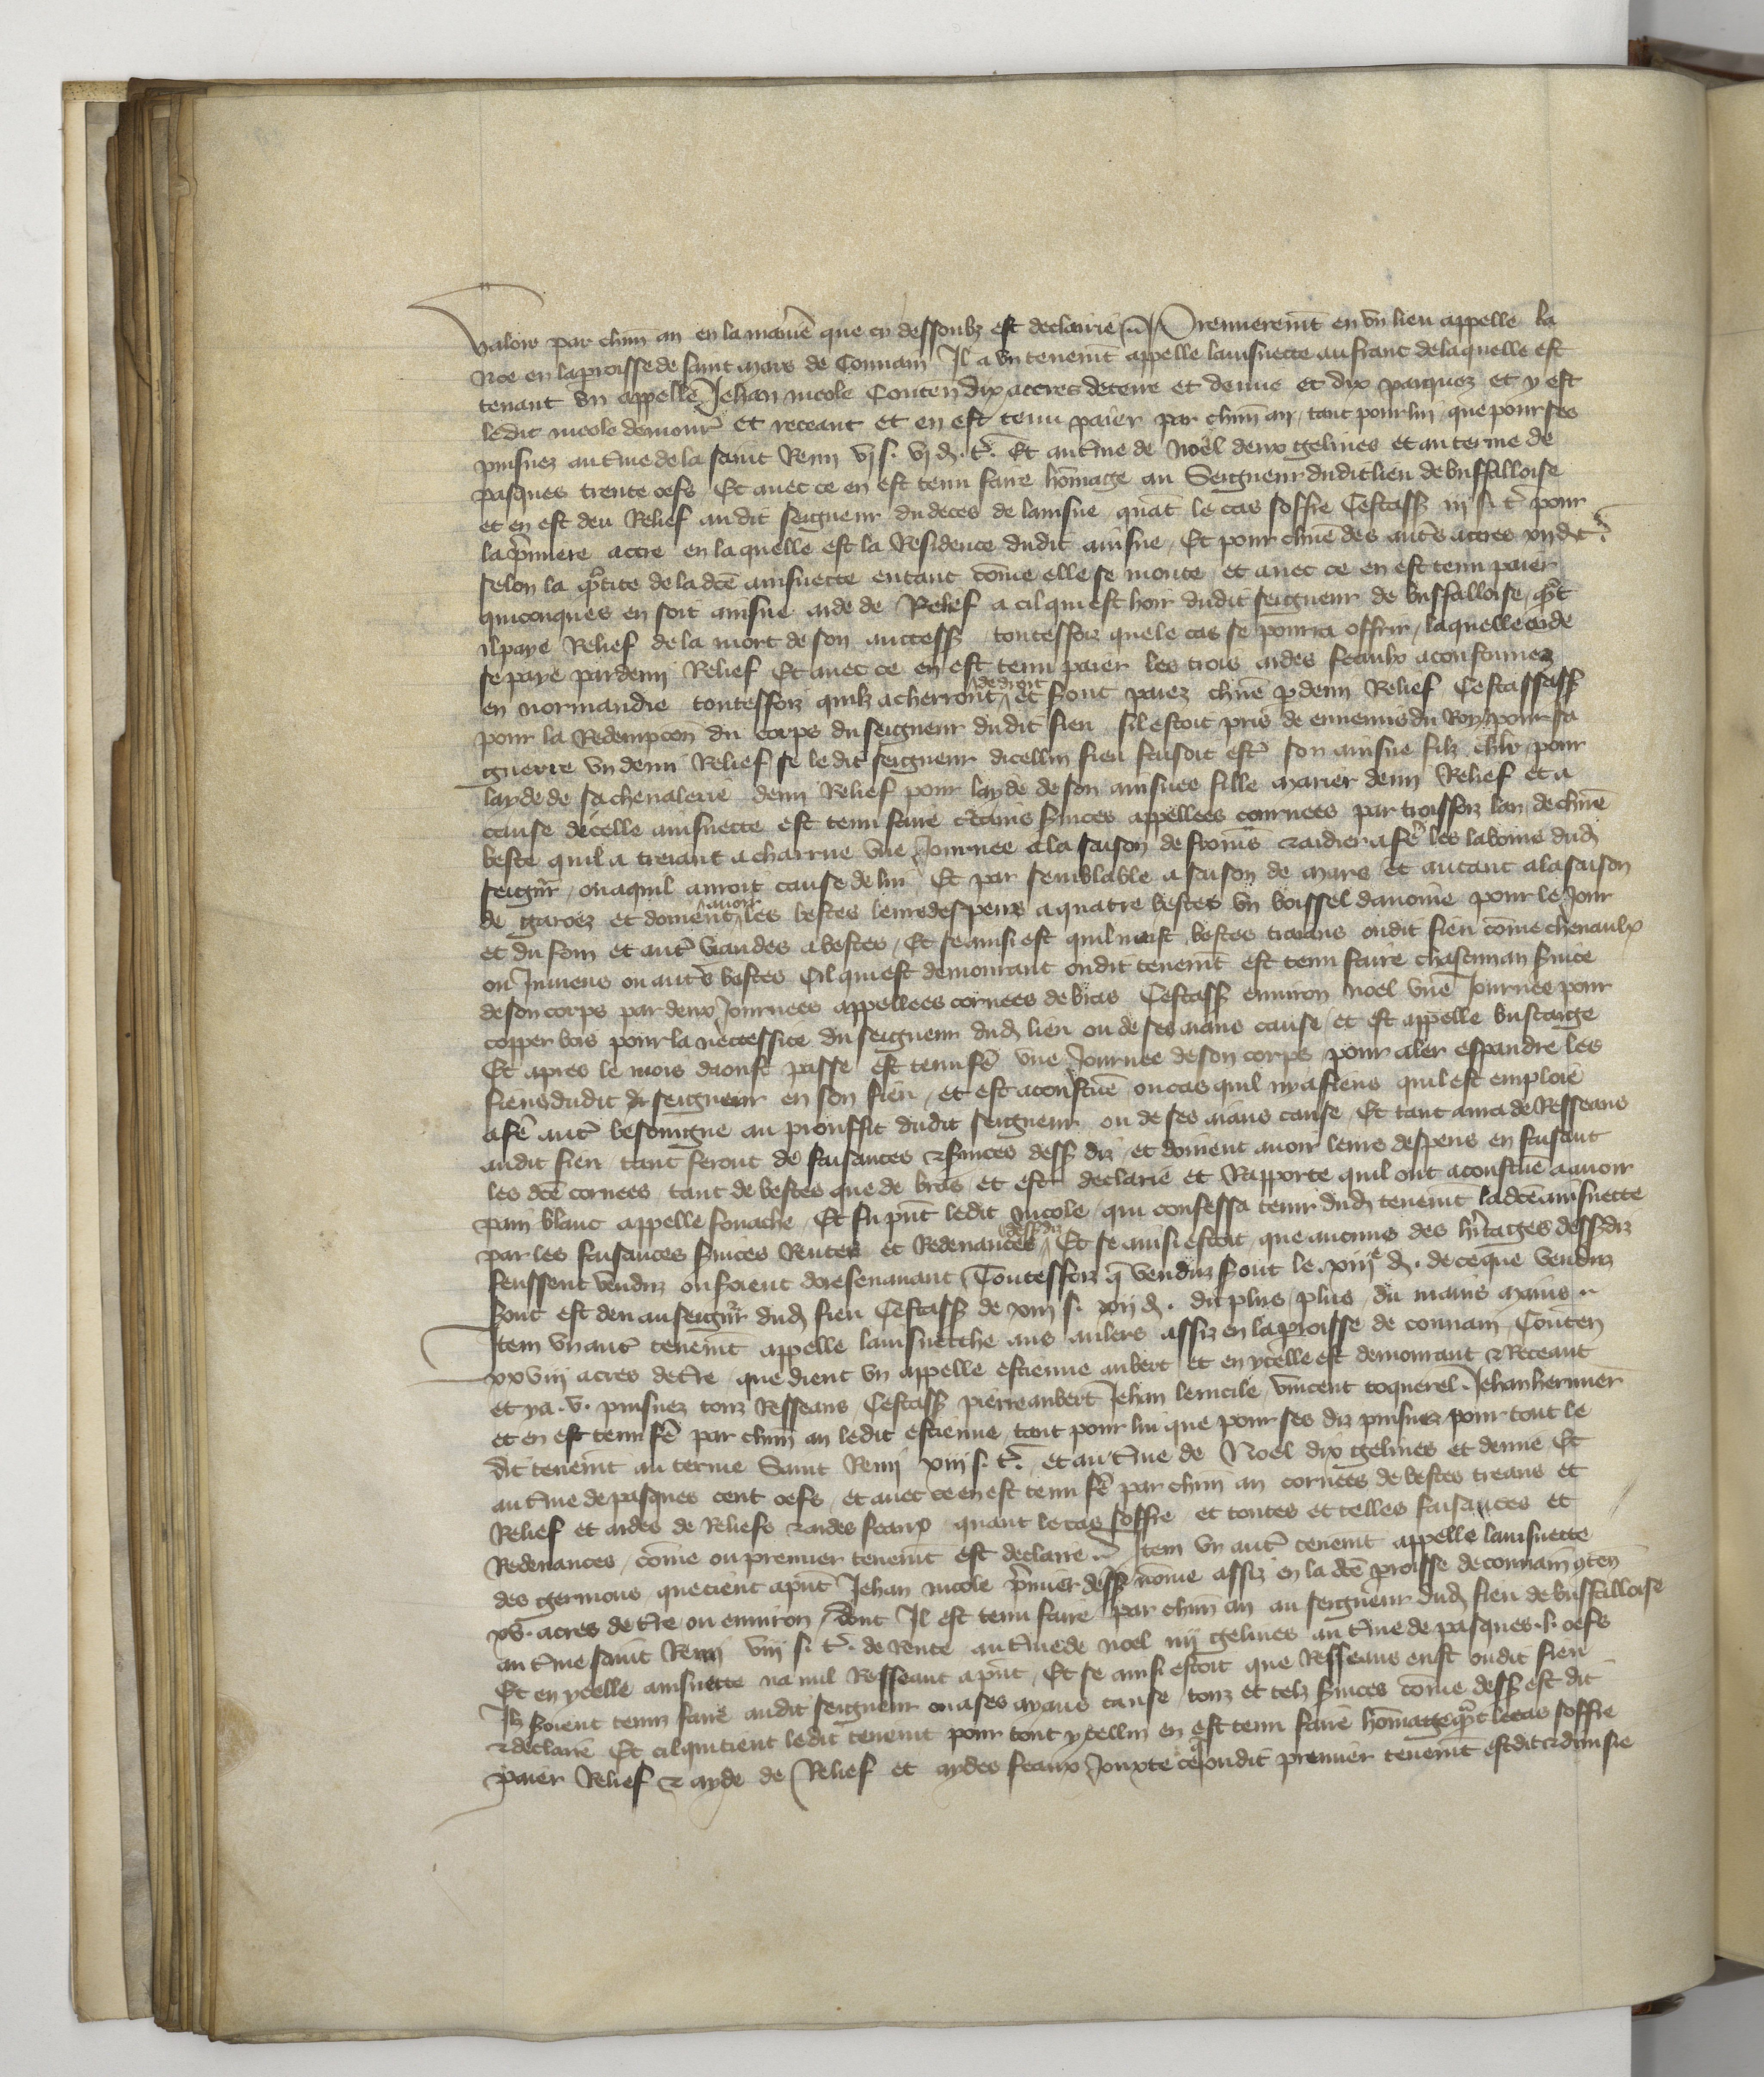 valoir par chūn an en la maniē que cy dessoubz est declairie Premieremt̄ en vn lieu appelle la
Noe en la proisse de saint mars de Connain Il a vn tenemt̄ appelle lainsnecte au franc de laquelle est
tenant vn appelle Jehan nicole Conten̄ dix accres de terre et demie et dix parquez et y est
ledit nicole demourt̄ et receant et en est tenu paier par chūn an tant pour lui que pour ses
puisnez au t̄me de la saint Remi vj s. vj d. t. Et au t̄me de Noel deux gelines et au terme de
pasques trente oefs Et auec ce en est tenu faire hōmage au Seigneur dudit lieu de buffalloise
et en est deu Relief audit seigneur du deces de lainsne quāt le cas soffre Cestass iij s. t. pour
la p̄miere accre en laquelle est la Residence dudit ainsne Et pour chūe des aut̄s accres xij d. t.
selon la q̄tite de la dc̄e ainsnecte en tant cōme elle se monte et auec ce en est tenu paier
quiconques en soit ainsne aide de Relief a cil qui est hoir dudit seigneur de buffalloise q̄t
il paye Relief de la mort de son ancess toutesfoiz que le cas se pourra offrir laquelle aide
se paye par demi Relief Et auec ce en est tenu paier les trois aides feaulx acoustumez
en normandie toutesfoiz quilz acherront de droit et sont paiez chūe p demi Relief Cestassass
pour la Redempcōn du corps du seigneur dudit fieu sil estoit pris de ennemis du Roy pour sa
guerre vn demi Relief se ledit seigneur dicellui fieu faisoit est̄ son ainsne filz chlr̄ pour
layde de sa cheualerie demi Relief pour layde de son ainsnee fille marier demi Relief et a
cause dicelle ainsnecte est tenu faire c̄tains s̄uices appellees cornees par troisfoiz lan de chūe
beste quil a treiant a charrue vne Journee a la saison de fromēs & aidier a fē les labome dud
seign̄r ou a quil auroit cause de lui Et par semblable a saison de mars et autant a la saison
de garez et doiuent auoir les bestes leurs despens a quatre bestes vn boissel dauoine pour le Jour
et du foin et aut̄ viandes a bestes Et se ainsi est quil neust bestes traians oudit fieu cōme cheuaulx
ou Jumens ou aut̄s bestes Cil qui est demourant oudit tenemt̄ est tenu faire chascun an s̄uice
de son corps par deux Journees appellees cornees de bras Cestass enuiron noel vne Journee pour
copper bois pour la neccessite du seigneur dud lieu ou de ses aians cause et est appelle buscaige
Et apres le mois daoust passe est tenu fē vne Journee de son corps pour aler espandre les
fiens dudit seigneur en son fieu et est acoustūe ou cas quil ny a fiens quil est emploie
a fē aut̄ besoingne au prouffit dudit seigneur ou de ses aians cause Et tant aura de Resseans
audit fieu tant seront de faisances & s̄uices dess diz et doiuent auoir leurs despens en faisant
les dc̄es cornees tant de bestes que de bras et est declarie et Rapporte quil ont acoustūe a auoir
pain blanc appelle fouache Et fu pūt ledit nicole qui confessa tenir dud tenemt̄ la dc̄e ainsnecte
par les faisances s̄uices Rentes et Redeuances dessdiz Et se ainsi estoit que aucuns des h̄itages dessdiz
feussent venduz ou soient doresenauant Toutesfoiz q̄ venduz sont le xiije d. de ce que venduz
sont est deu au seign̄r dud fieu Cestass de xiij s. xij d. du plus plus du mains mains
Item vn aut̄ tenemt̄ appelle lainsnetche aus aulers assiz en la proisse de connain Conten̄
xxviij acres de t̄re que dient vn appelle estienne aubert et en ycelle est demourant & Receant
et y a v. puisnez touz Resseans Cestass pierre aubert Jehan lencile vincent coquerel Jehan hermier
et en est tenu fē par chūn an ledit estienne tant pour lui que pour ses diz puisnez pour tout le
dit tenemt̄ au terme Saint Remi xiij s. t. et au t̄me de Noel dix gelines et demie Et
au t̄me de pasques cent oefs et auec ce en est tenu fē par chūn an cornees de bestes treans et
Relief et aides de Reliefs & aides feaux quant le cas soffre et toutes et telles faisances et
Redeuances cōme ou premier tenemt̄ est declarie Item vn aut̄ tenemt̄ appelle lainsnecte
des germons que tient a pūt Jehan nicole p̄mier dess nōme assiz en la dc̄e proisse de connain 9ten̄
xv. acres de t̄re ou enuiron dont Il est tenu faire par chūn an au seigneur dud fieu de buffalloise
au t̄me saint Remi viij s. t. de rente au t̄me de noel iiij gelines au t̄me de pasques l. oefs
Et en ycelle ainsnecte na nul Resseant a pūt Et se ainsi estoit que Resseans eust oudit fieu
Ilz soient tenuz faire audit seigneur ou a ses ayans cause touz et telz s̄uices cōme dess est dit
& declarie Et cil qui tient ledit tenemt̄ pour tout ycellui en est tenu faire hōmage q̄t le cas soffre
paier Relief & ayde de Relief et aydes feaux Jouxte ce q̄ oudit premier tenemt̄ est dit & diuisie